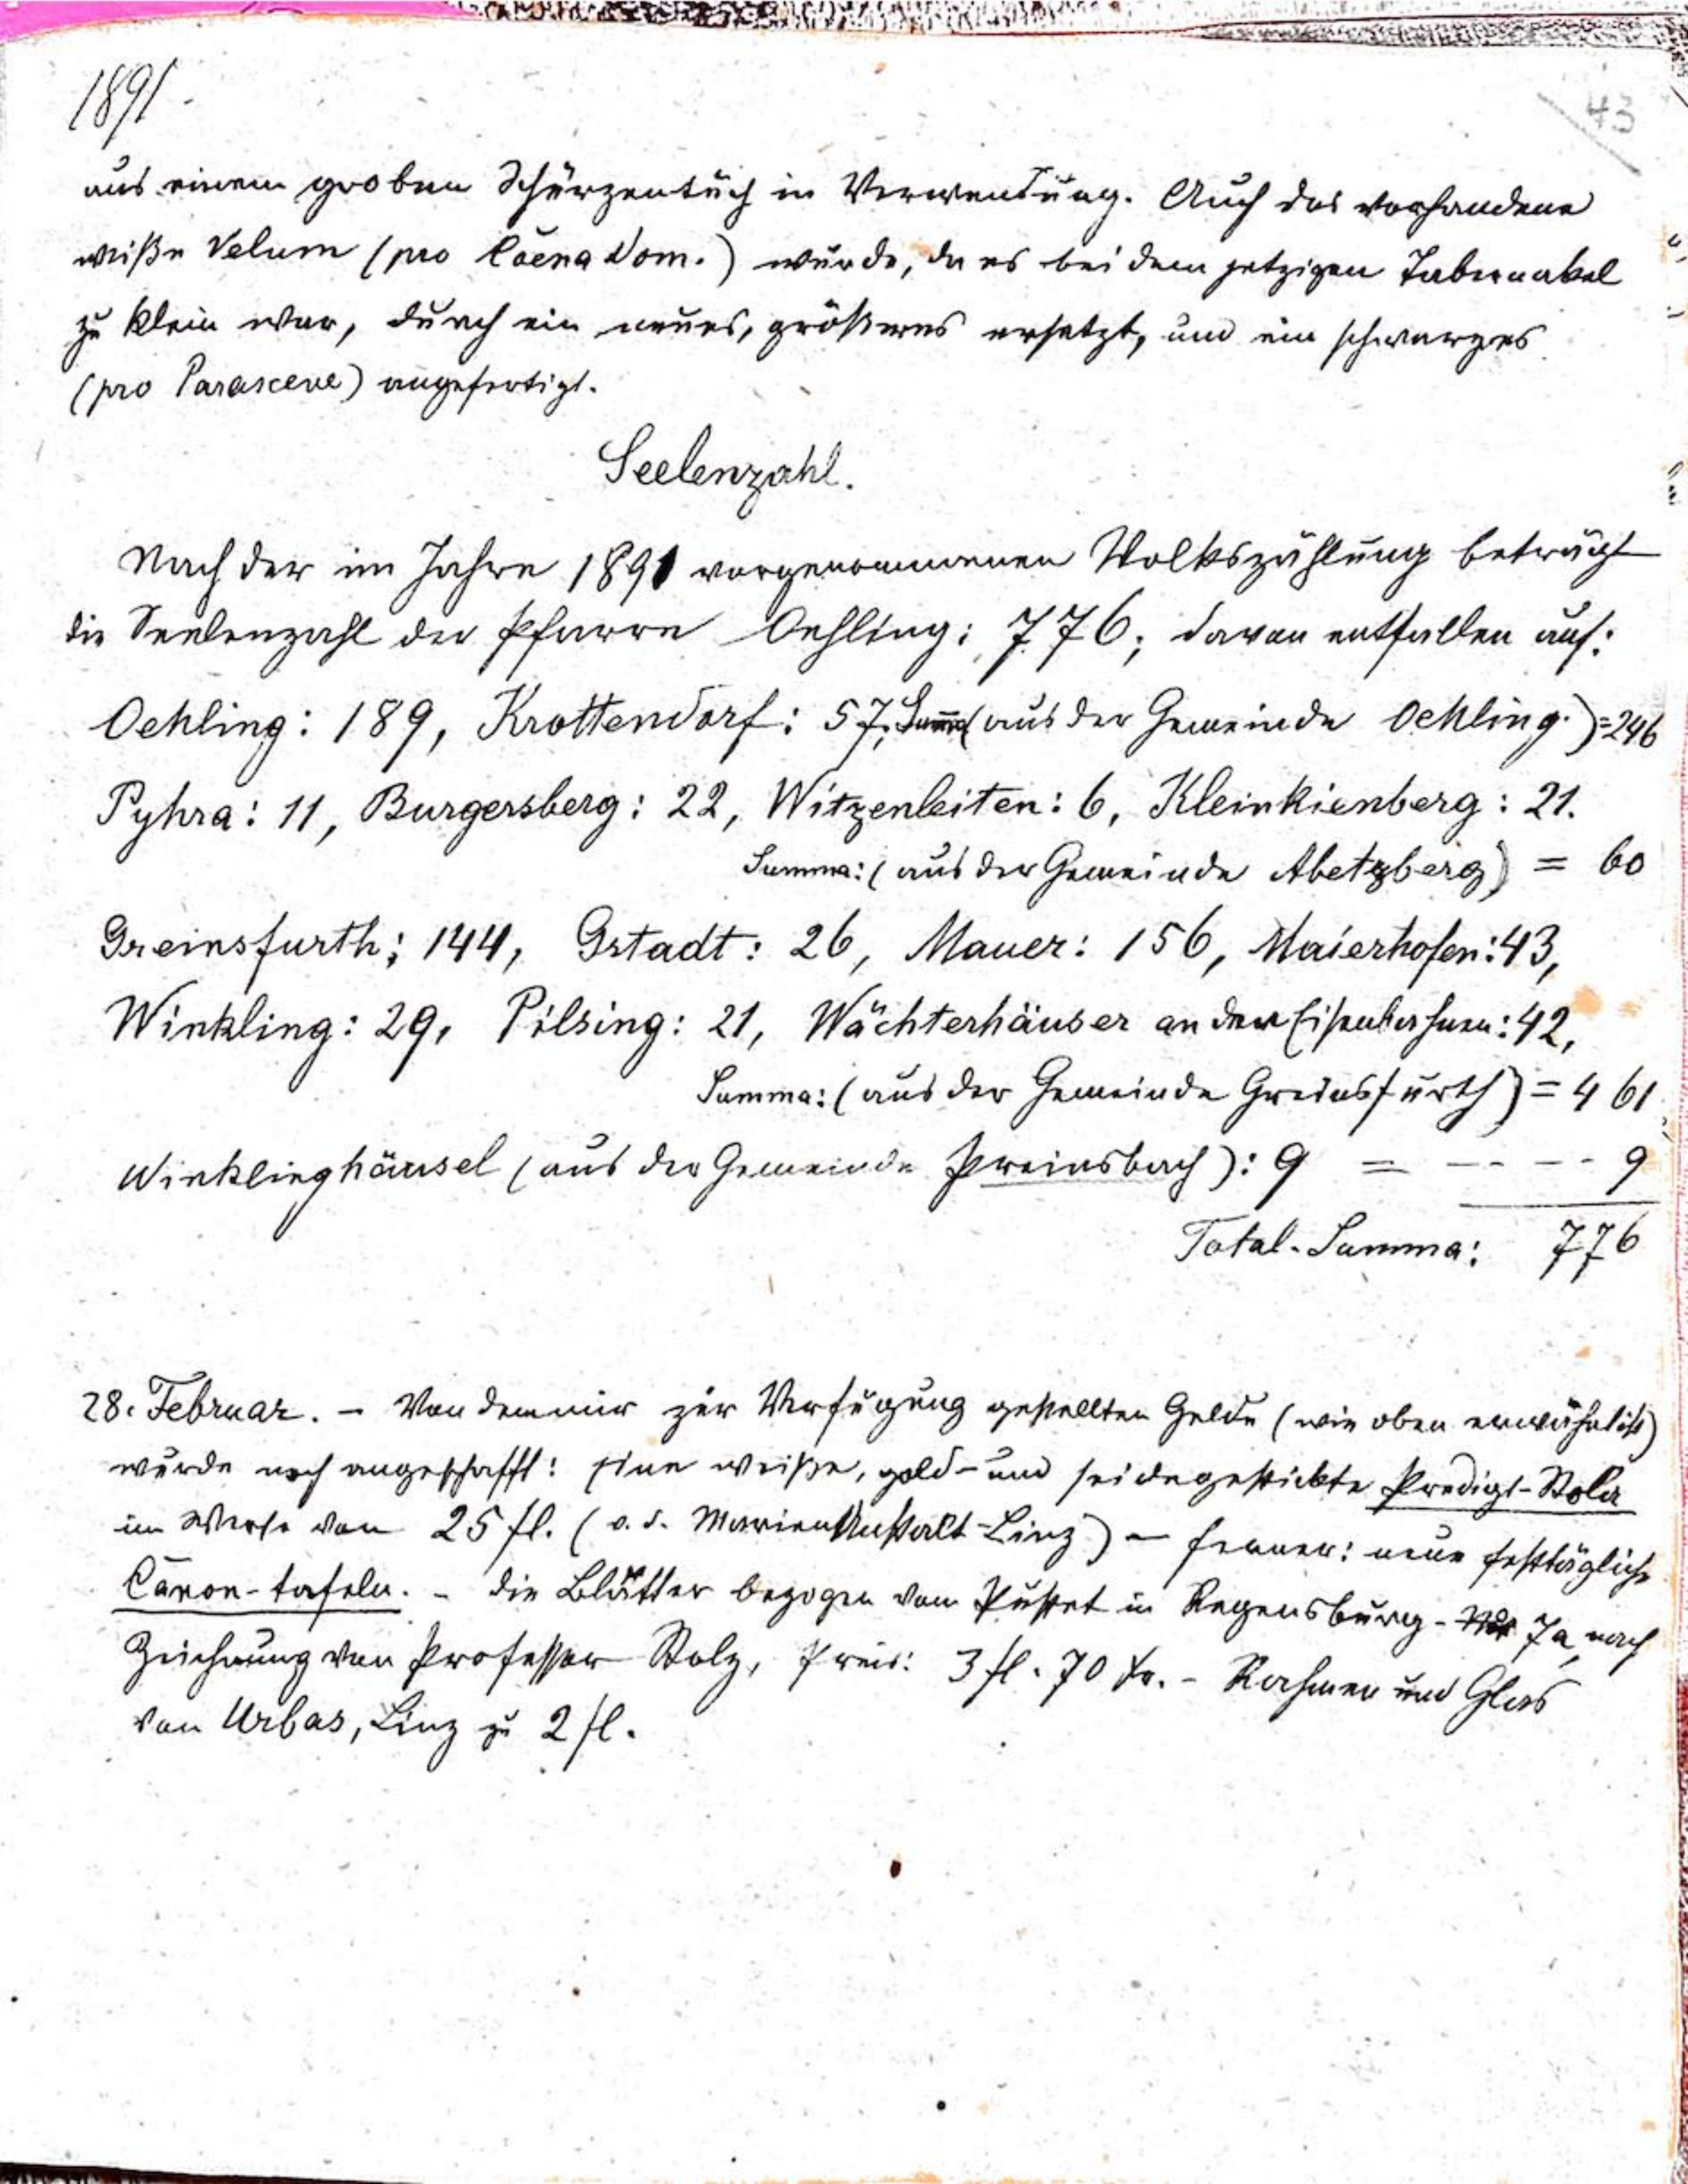 1891.
43
aus einem groben Schürzentuch in Verwendung. Auch das vorhandene
weiße Velum (pro Coena Dom.) wurde, da es bei dem jetzigen Tabernakel
zu klein war, durch ein neues, größeres ersetzt, und ein schwarzes
(pro Parasceve) angefertigt.
Seelenzahl.
Nach der im Jahre 1891 vorgenommenen Volkszählung beträgt
die Seelenzahl der Pfarre Oehling: 776; davon entfallen auf:
Oehling: 189, Krottendorf: 57, Summa (aus der Gemeinde Oehling.) = 246
Pyhra: 11, Burgersberg: 22, Witzenleiten: 6, Kleinkienberg: 21.
Summa: (aus der Gemeinde Abetzberg) = 60
Greinsfurth: 144, Gstadt: 26, Mauer: 156, Maierhofen: 43,
Winkling: 29, Pilsing: 21, Wächterhäuser an der Eisenbahn: 42,
Summa: (aus der Gemeinde Greinsfurth) = 461
Winklinghäusel (aus der Gemeinde Preinsbach): 9 = -- -- 9
Total-Summa: 776
28. Februar. – Von dem mir zur Verfügung gestellten Gelde (wie oben erwähnt ist)
wurde noch angeschafft: Eine weiße, gold- und seidegestickte Predigt-Stola
im Werte von 25 fl. (v. d. Marien Anstalt-Linz) – ferner: neue festtägliche
Canon-tafeln. – Die Blätter bezogen von Pustet in Regensburg – 7a, nach
Zeichnung von Professor Stolz, Preis: 3 fl. 70 kr. – Rahmen und Glas
von Urbas, Linz zu 2 fl.